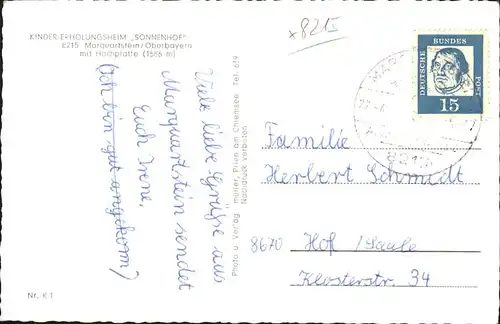 KINDER-ERHOLUNGSHEIM "SONNENHOF"
8215 Marquartstein/Oberbayern
mit Hochplatte (1585 m)
x 8215
Viele liebe Grüße aus
Marquartstein sendet
Euch Irene.
(Ich bin gut angekom)
Photo u. Verlag: Müller, Prien am Chiemsee Tel. 619
Nachdruck verboten
DEUTSCHE
BUNDES
POST
15
8215
Familie
Herbert Schmidt
8670 Hof /Saale
Klosterstr. 34
Nr. K 1